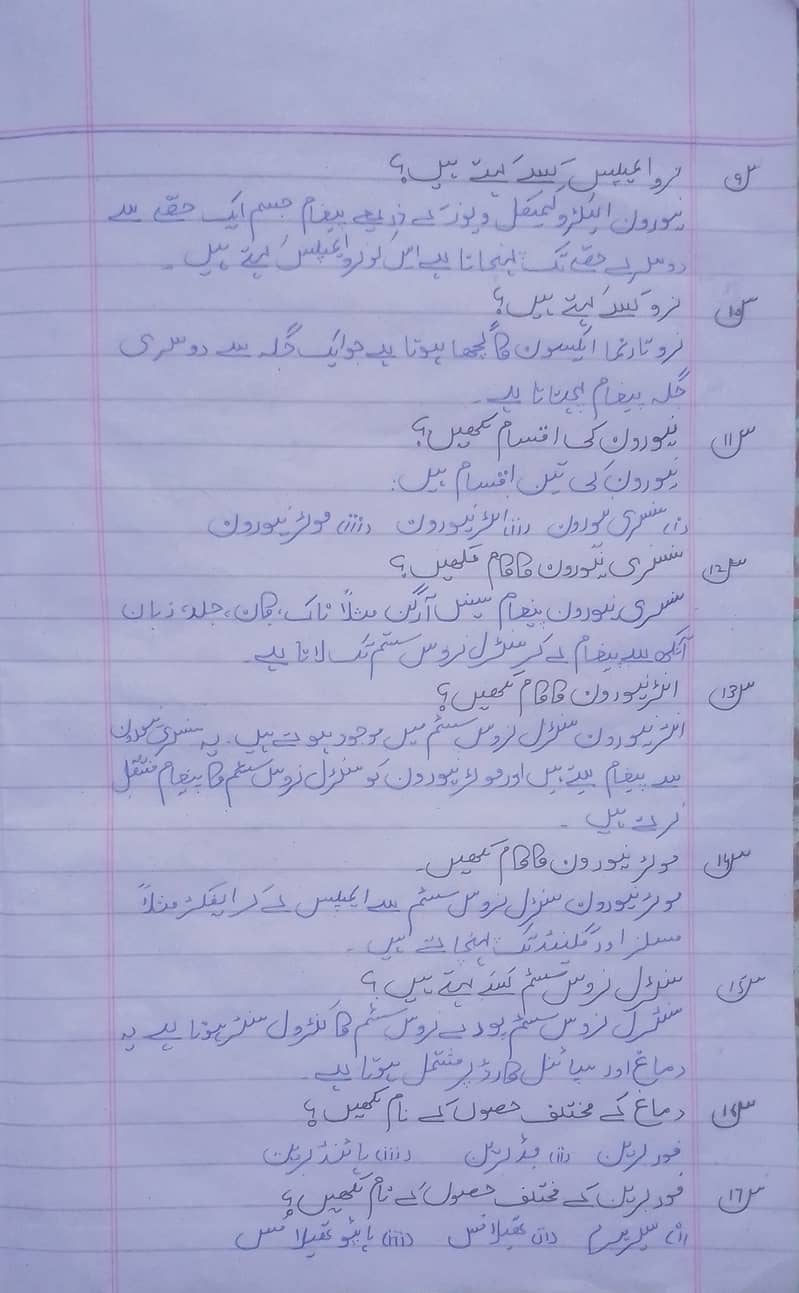 س9 نروامپلس کسے کہتے ہیں؟
نیورون الیکٹروکیمیکل ویوز کے ذریعے پیغام جسم ایک حصے سے
دوسرے حصے تک پہنچاتا ہے اس کو نروامپلس کہتے ہیں۔
س10 نرو کسے کہتے ہیں؟
نرو تارنما ایکسون کا گچھا ہوتا ہے جو ایک جگہ سے دوسری
جگہ پیغام پہنچاتا ہے۔
س11 نیورون کی اقسام لکھیں؟
نیورون کی تین اقسام ہیں:
(i) سنسری نیورون (ii) انٹرنیورون (iii) موٹر نیورون
س12 سنسری نیورون کا کام لکھیں؟
سنسری نیورون پیغام سینس آرگن مثلاً ناک، کان، جلد، زبان
آنکھ سے پیغام لے کر سنٹرل نروس سسٹم تک لاتا ہے۔
س13 انٹرنیورون کا کام لکھیں؟
انٹرنیورون سنٹرل نروس سسٹم میں موجود ہوتے ہیں۔ یہ سنسری نیورون
سے پیغام لیتے ہیں اور موٹر نیورون کو سنٹرل نروس سسٹم کا پیغام منتقل
کرتے ہیں۔
س14 موٹر نیورون کا کام لکھیں۔
موٹر نیورون سنٹرل نروس سسٹم سے امپلس لے کر ایفکٹر مثلاً
مسلز اور گلینڈ تک پہنچاتے ہیں۔
س15 سنٹرل نروس سسٹم کسے کہتے ہیں؟
سنٹرل نروس سسٹم پورے نروس سسٹم کا کنٹرول سنٹر ہوتا ہے یہ
دماغ اور سپائنل کارڈ پر مشتمل ہوتا ہے۔
س16 دماغ کے مختلف حصوں کے نام لکھیں؟
فور برین (ii) مڈ برین (iii) ہائنڈ برین
س17 فور برین کے مختلف حصوں کے نام لکھیں؟
(i) سیریبرم (ii) تھیلامس (iii) ہائپو تھیلامس